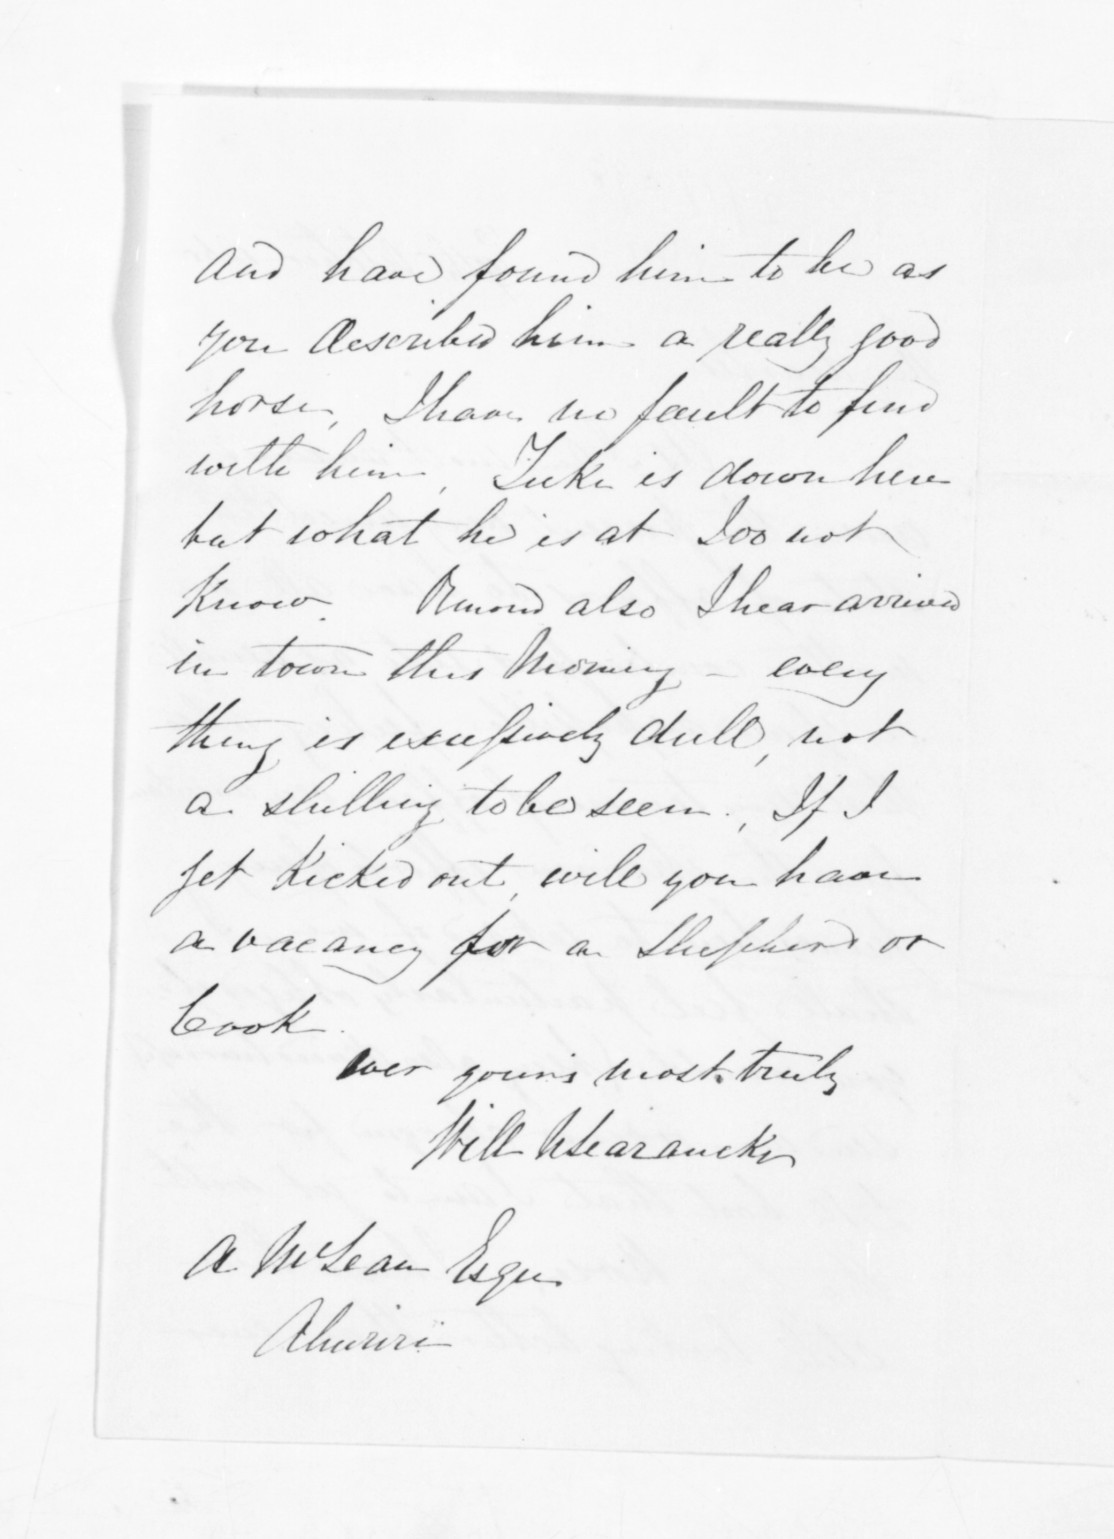 and have found him to be as
you described him a really good
horse, I have no fault to find
with him, Tuke is down here
but what he is at I do not
Know. Ormond also I hear arrived
in town this Morning - every
thing is excessively dull, not
a shilling to be seen., If I
get Kicked out, will you have
a vacancy for a Shepherd or
Cook.
ever your's most truly
Will Marauckr
A McLean Esqre
Ahuriri